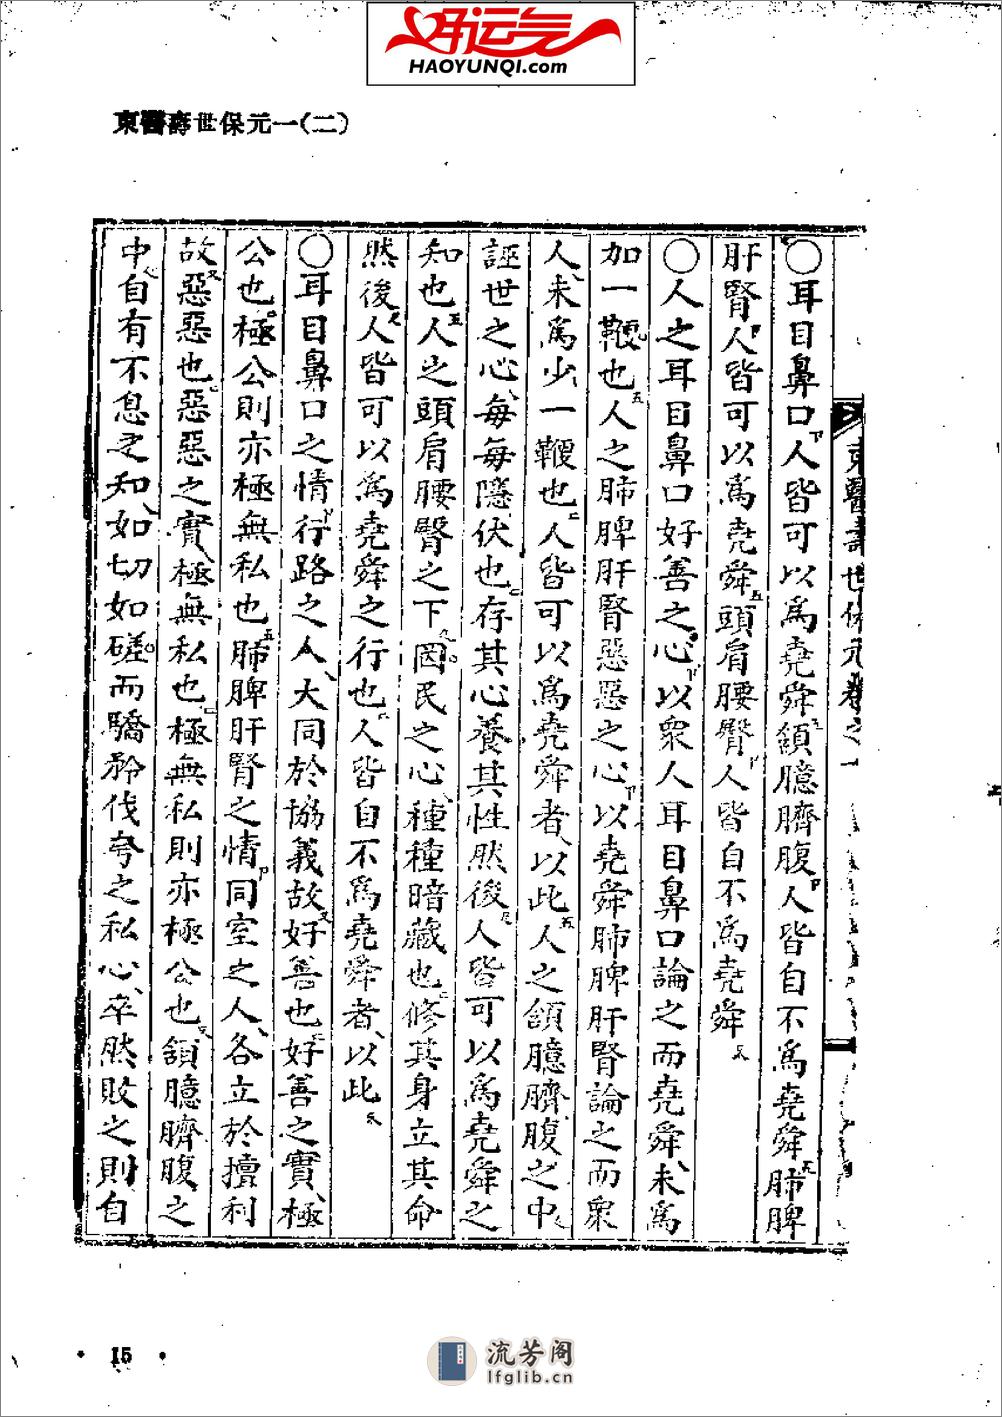 好运气
HAOYUNQI.com
東醫壽世保元一(二)
東醫壽世保元卷之一
○耳目鼻口人皆可以爲堯舜頷臆臍腹人皆自不爲堯舜肺脾
肝腎人皆可以爲堯舜頭肩腰臀人皆自不爲堯舜
○人之耳目鼻口好善之心以衆人耳目鼻口論之而堯舜未爲
加一鞭也人之肺脾肝腎惡惡之心以堯舜肺脾肝腎論之而衆
人未爲少一鞭也人皆可以爲堯舜者以此人之頷臆臍腹之中
誣世之心每每隱伏也存其心養其性然後人皆可以爲堯舜之
知也人之頭肩腰臀之下罔民之心種種暗藏也修其身立其命
然後人皆可以爲堯舜之行也人皆自不爲堯舜者以此
○耳目鼻口之情行路之人大同於協義故好善也好善之實極
公也極公則亦極無私也肺脾肝腎之情同室之人各立於擅利
故惡惡也惡惡之實極無私也極無私則亦極公也頷臆臍腹之
中自有不息之知如切如磋而驕矜伐夸之私心卒然敗之則自
· 15 ·
流芳阁
lfglib.cn